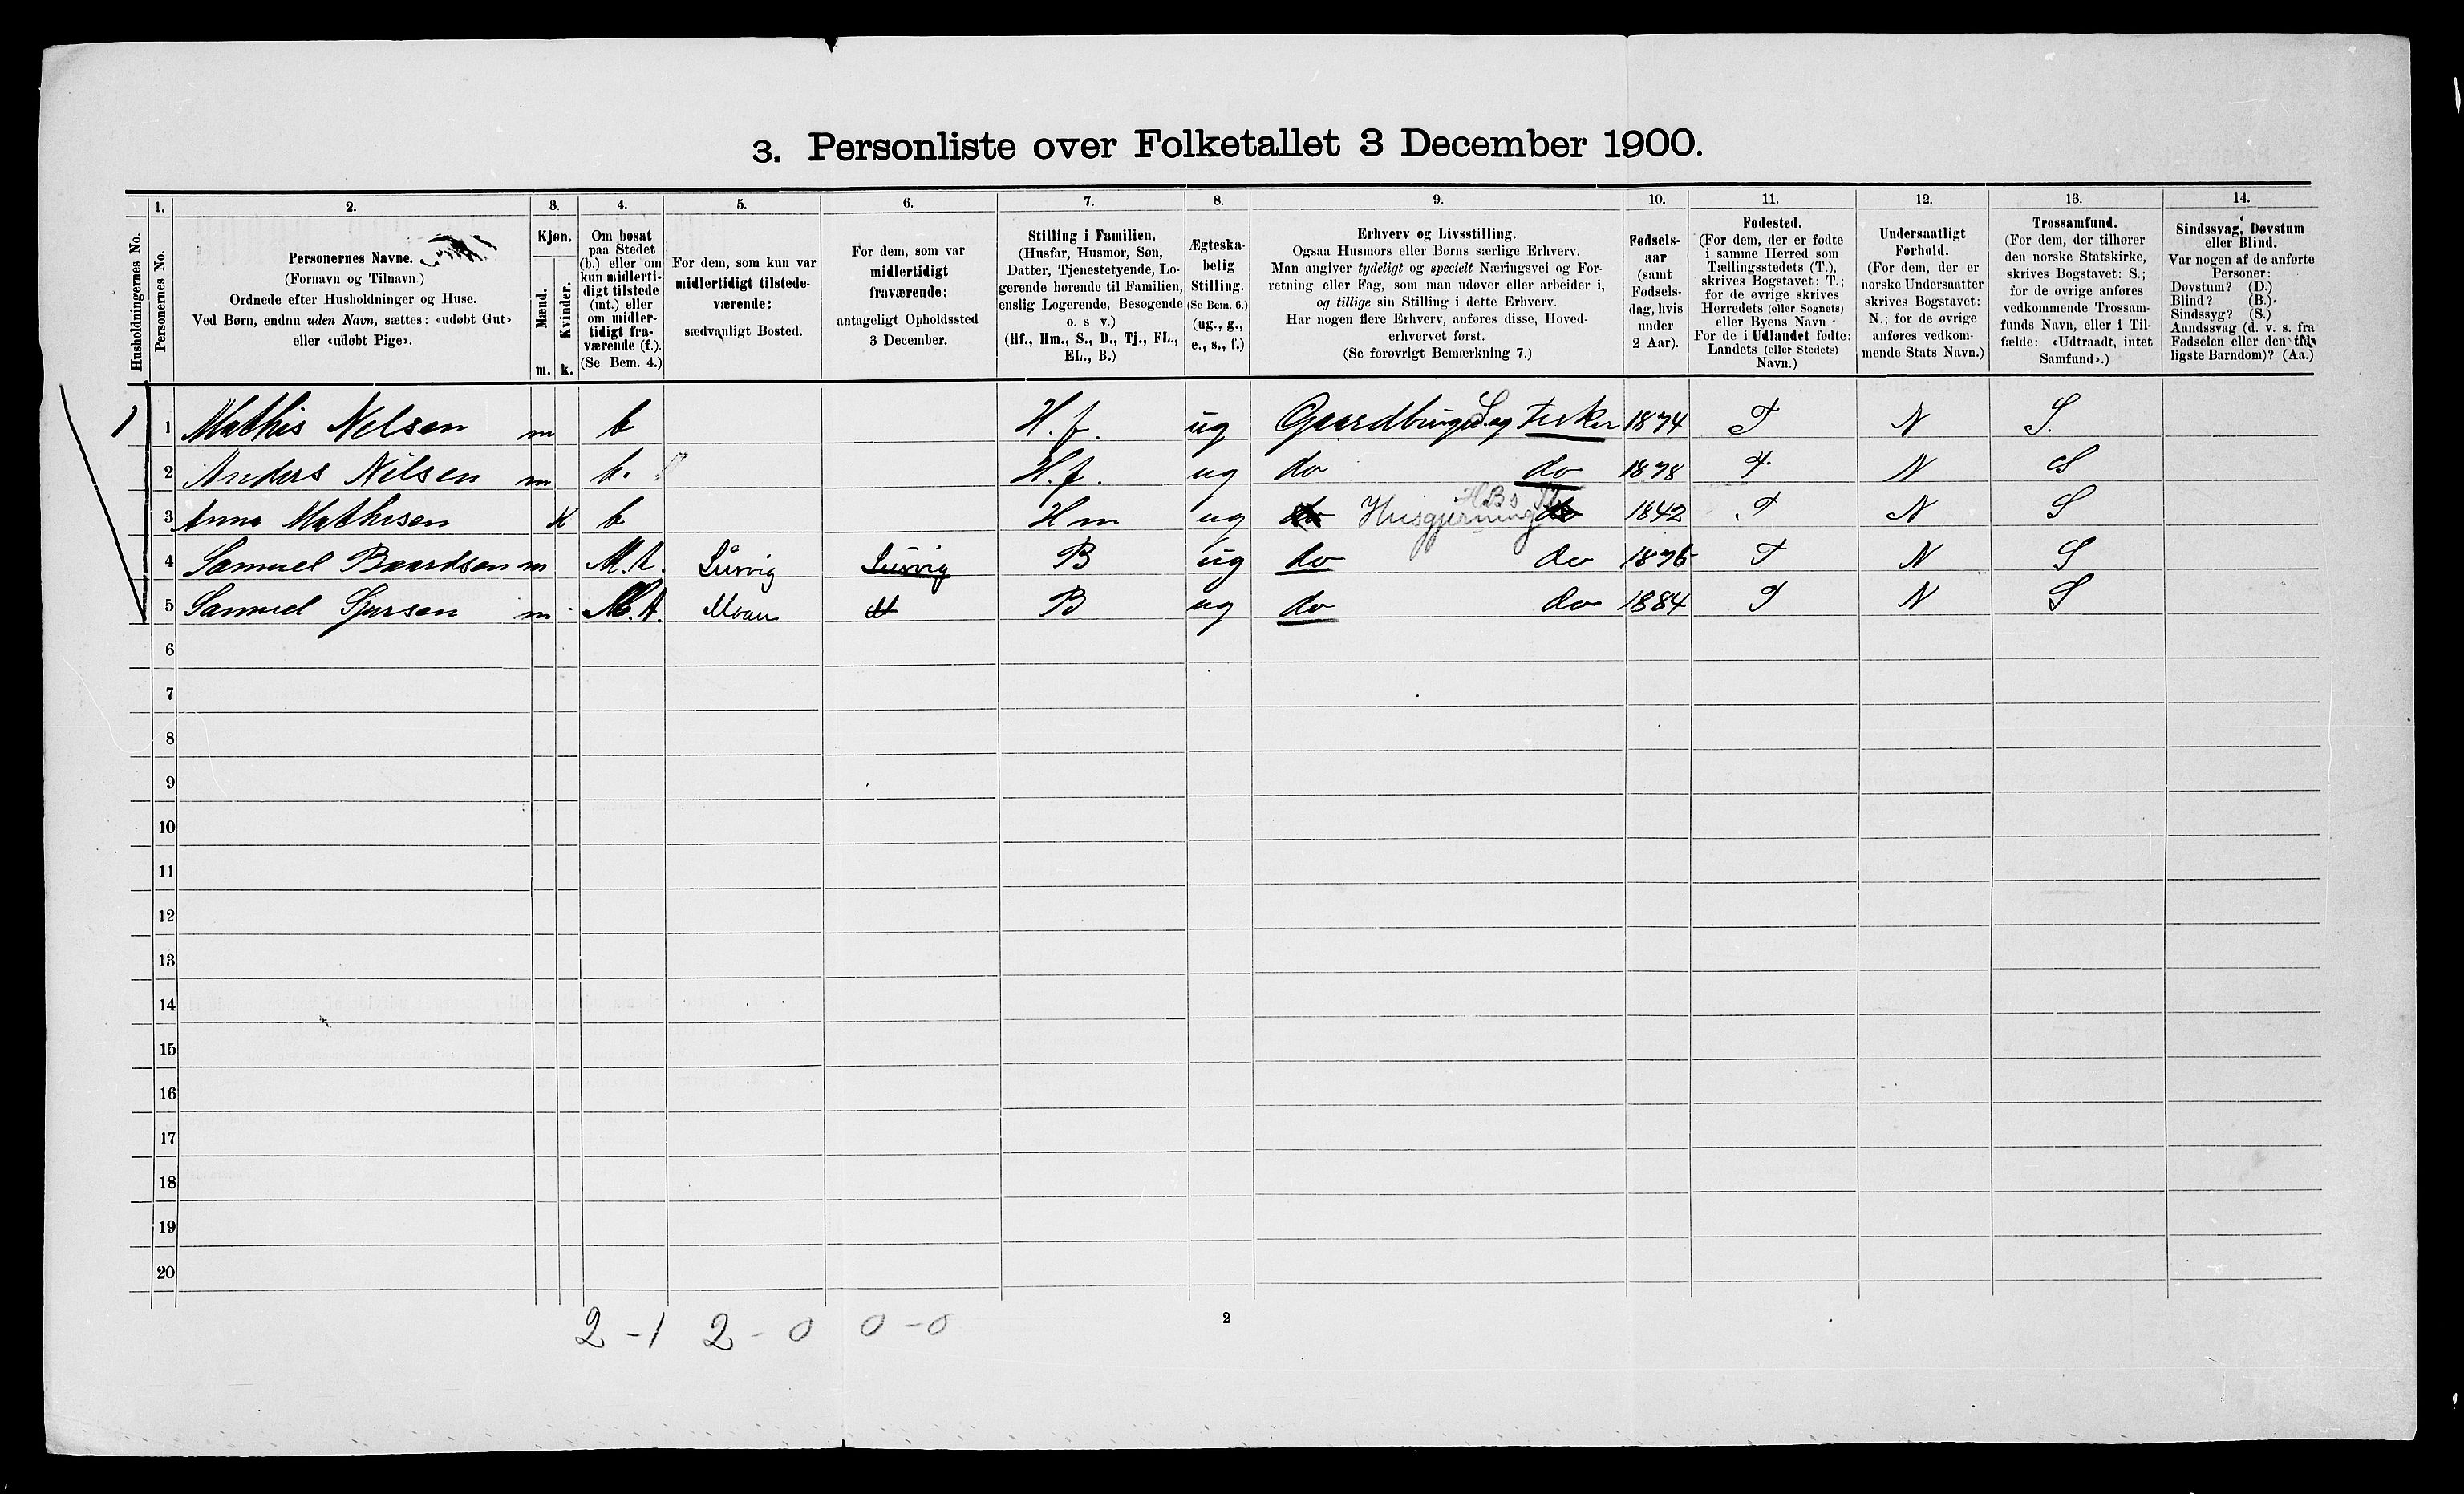 3. Personliste over Folketallet 3 December 1900.
1. 2. 3. 4. 5. 6. 7. 8. 9. 10. 11. 12. 13. 14.
Husholdningernes No.
Personernes No.
Personernes Navne.
(Fornavn og Tilnavn)
Ordnede efter Husholdninger og Huse.
Ved Børn, endnu uden Navn, sættes: «udøbt Gut»
eller «udøbt Pige».
Kjøn.
Mænd.
Kvinder.
m. k.
Om bosat
paa Stedet
(b.) eller om
kun midlerti-
digt tilstede
(mt.) eller
om midler-
tidigt fra-
værende (f.).
(Se Bem. 4.)
For dem, som kun var
midlertidigt tilstede-
værende:
sædvanligt Bosted.
For dem, som var
midlertidigt
fraværende:
antageligt Opholdssted
3 December.
Stilling i Familien.
(Husfar, Husmor, Søn,
Datter, Tjenestetyende, Lo-
gerende hørende til Familien,
enslig Logerende, Besøgende
o. s v.)
(Hf., Hm., S., D., Tj., FL.,
EL., B.)
Ægteska-
belig
Stilling.
(Se Bem. 6.)
(ug., g.,
e., s., f.)
Erhverv og Livsstilling.
Ogsaa Husmors eller Børns særlige Erhverv.
Man angiver tydeligt og specielt Næringsvei og For-
retning eller Fag, som man udøver eller arbeider i,
og tillige sin Stilling i dette Erhverv.
Har nogen flere Erhverv, anføres disse, Hoved-
erhvervet først.
(Se forøvrigt Bemærkning 7.)
Fødsels-
aar
(samt
Fødsels-
dag, hvis
under
2 Aar).
Fødested.
(For dem, der er fødte
i samme Herred som
Tællingsstedets (T.),
skrives Bogstavet: T.;
for de øvrige skrives
Herredets (eller Sognets)
eller Byens Navn
For de i Udlandet fødte:
Landets (eller Stedets)
Navn.)
Undersaatligt
Forhold.
(For dem, der er
norske Undersaatter
skrives Bogstavet:
N.; for de øvrige
anføres vedkom-
mende Stats Navn.)
Trossamfund.
(For dem, der tilhører
den norske Statskirke,
skrives Bogstavet: S.;
for de øvrige anføres
vedkommende Trossam-
funds Navn, eller i Til-
fælde: «Udtraadt, intet
Samfund».)
Sindssvag, Døvstum
eller Blind.
Var nogen af de anførte
Personer:
Døvstum? (D.)
Blind? (B.)
Sindssyg? (S.)
Aandssvag (d. v. s. fra
Fødselen eller den tid-
ligste Barndom)? (Aa.)
1 1 Mathis Nelsen m b H. f. ug Gaardbruger S og Fisker 1874 T N S.
2 Anders Nilsen m b. H. f. ug do do 1878 T. N S
3 Anna Mathisen k b H m ug do Husgjerning do 1842 T N S
4 Samuel Baardsen m M. t. Lusvig Lusvig B ug do do 1876 T N S
5 Samuel Sjursen m M. t. Moan B ug do do 1884 T N S
6
7
8
9
10
11
12
13
14
15
16
17
18
19
20
2 - 1 2 - 0 0 - 0
2